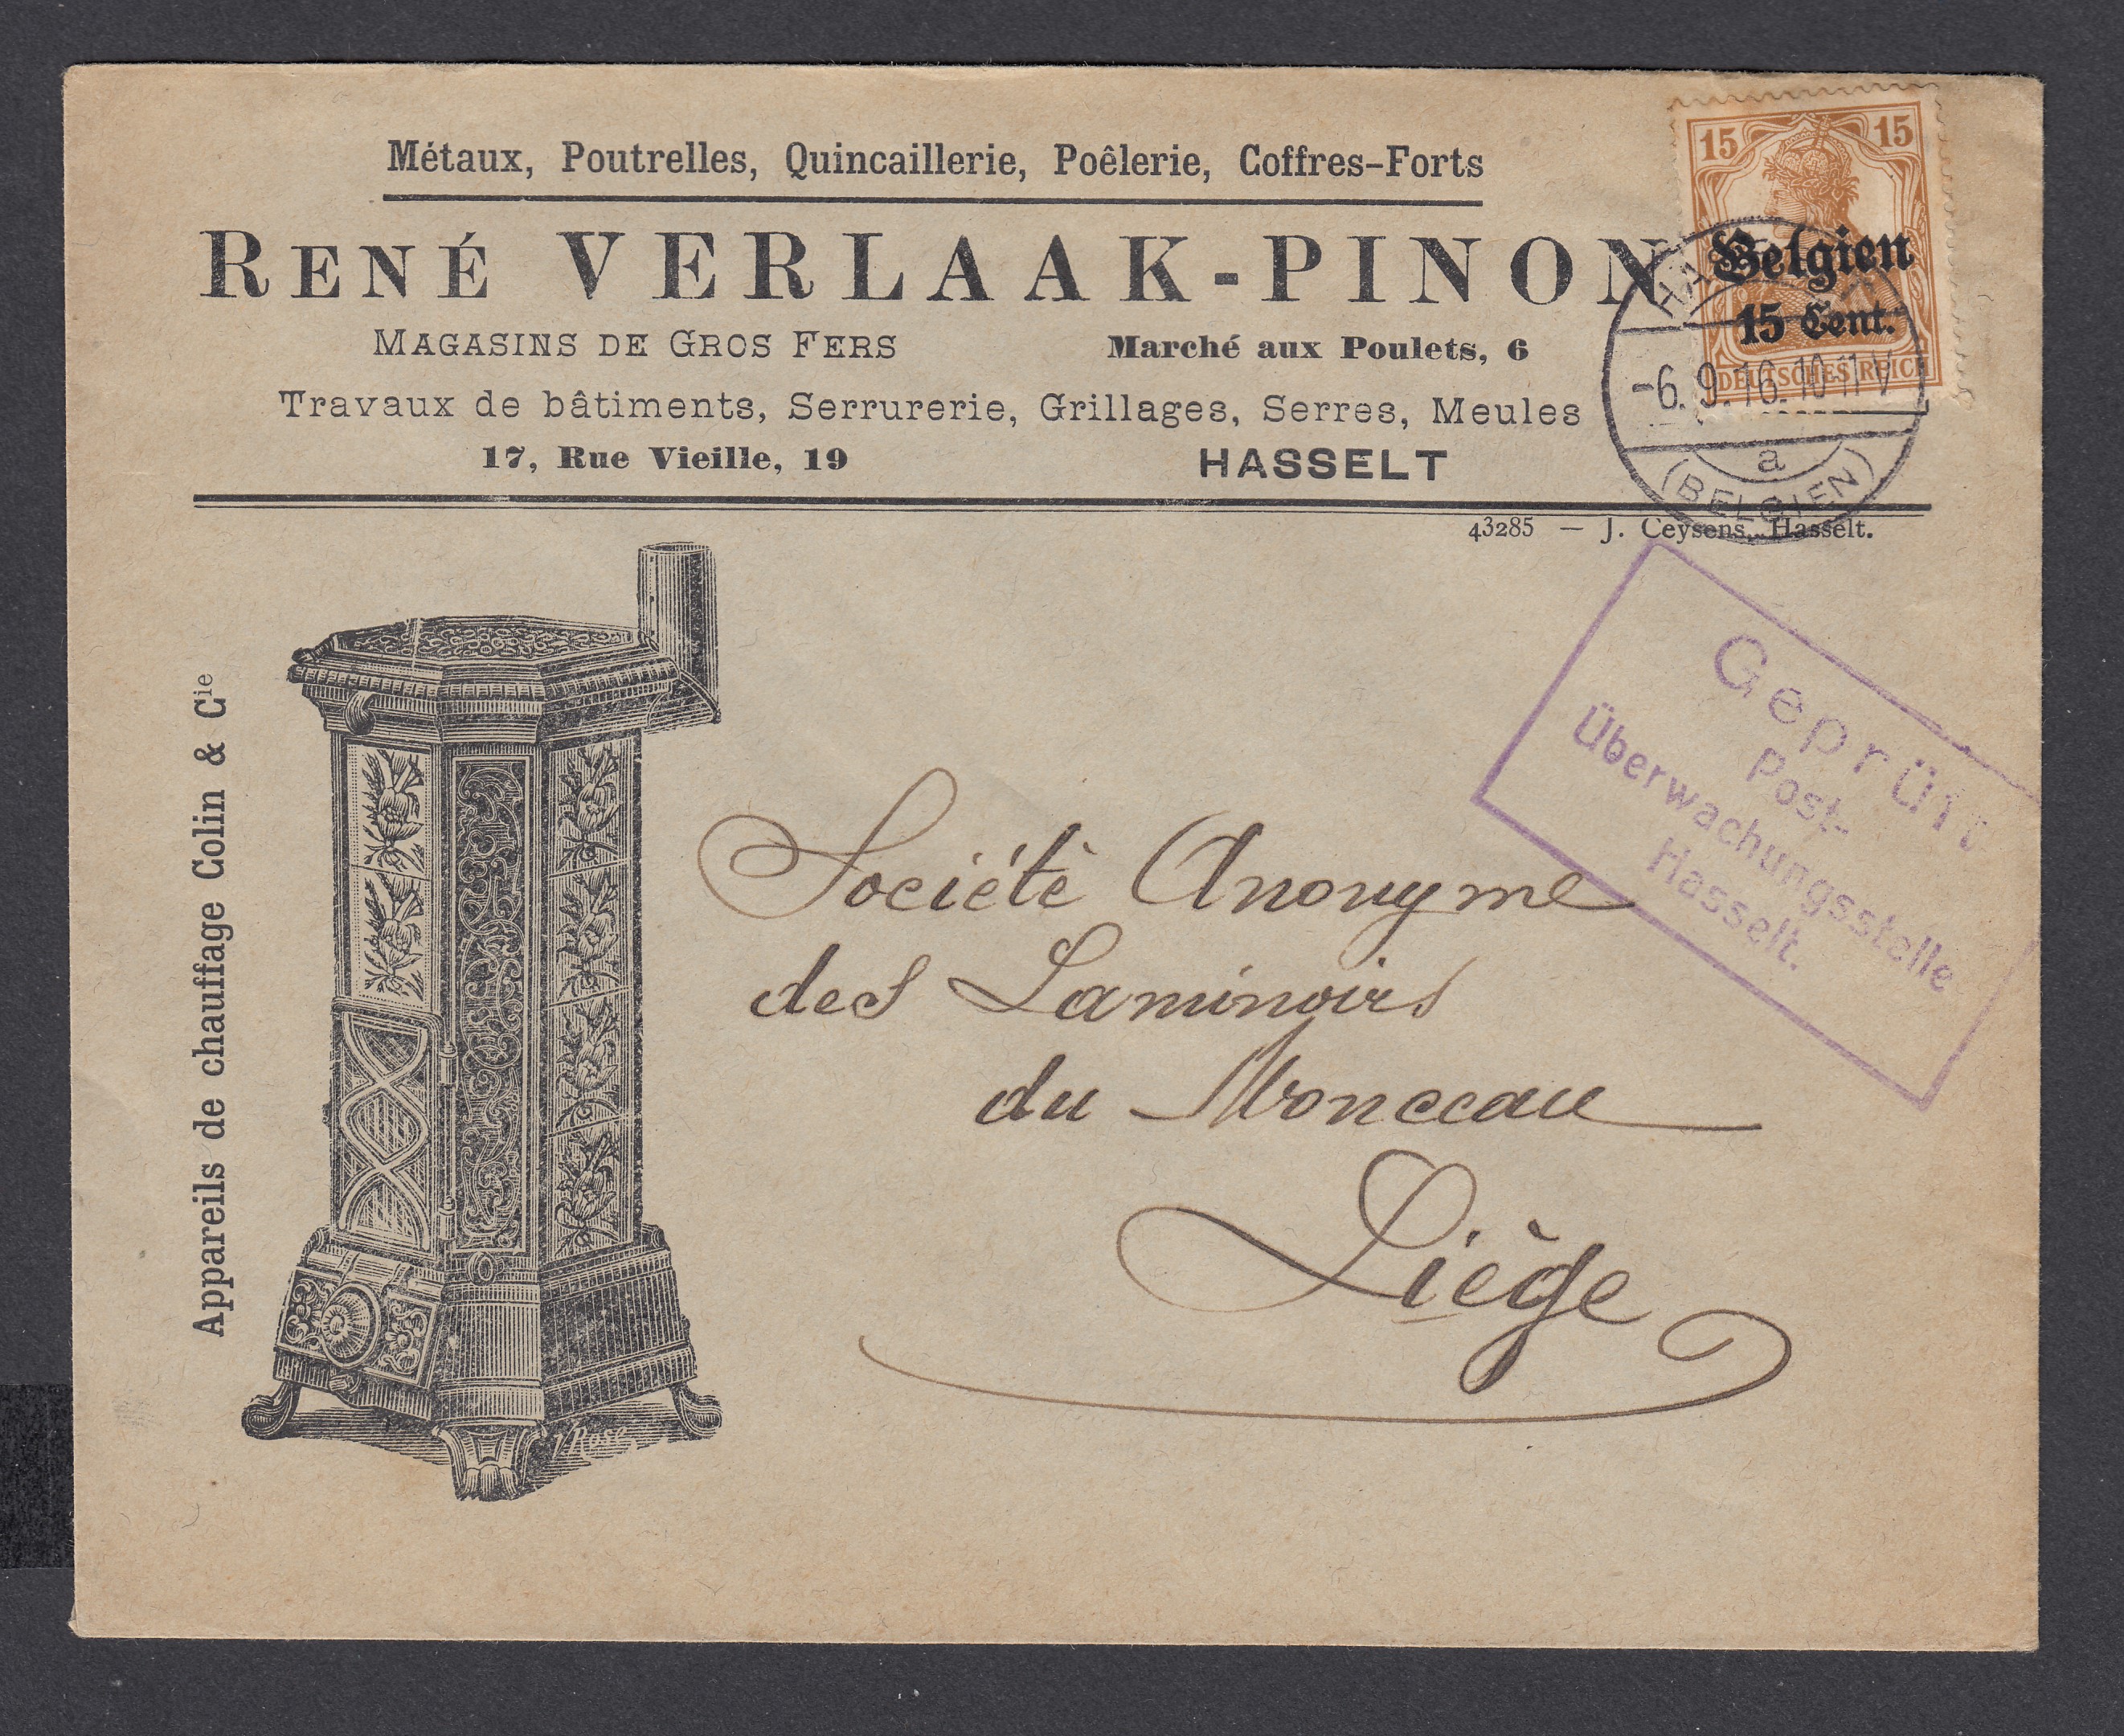 Métaux, Poutrelles, Quincaillerie, Poêlerie, Coffres-Forts
RENÉ VERLAAK-PINON
MAGASINS DE GROS FERS
Marché aux Poulets, 6
Travaux de bâtiments, Serrurerie, Grillages, Serres, Meules
17, Rue Vieille, 19
HASSELT
43285 — J. Ceysens, Hasselt.
15 15
Belgien
15 Cent.
DEUTSCHES REICH
-6.9.16.10-11V
a
(BELGIEN)
Geprüft
Post-
Überwachungsstelle
Hasselt.
Appareils de chauffage Colin & Cie
J. Rose
Société Anonyme
des Laminoirs
du Monceau
Liège